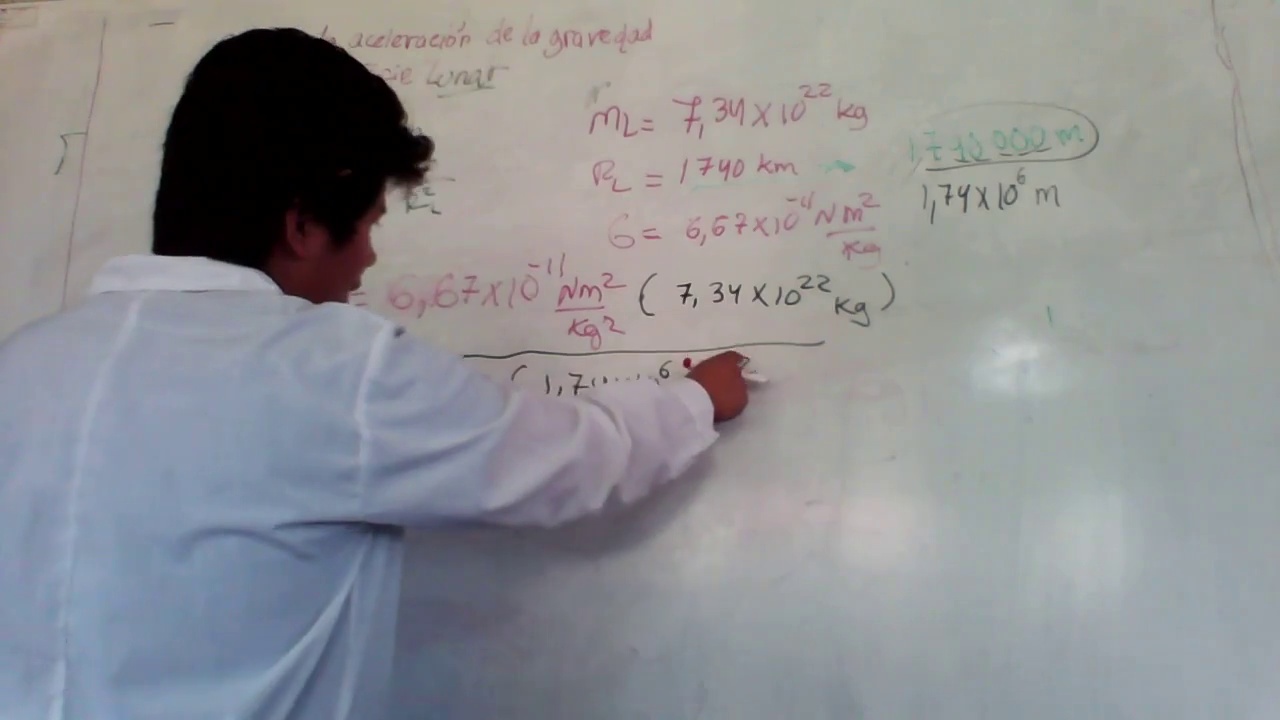 la aceleración de la gravedad
Lunar
mL = 7,34 x 10²² kg
RL = 1740 km → 1,740 000 m
1,74 x 10⁶ m
G = 6,67 x 10⁻¹¹ Nm²/kg
= 6,67 x 10⁻¹¹ Nm²/kg² ( 7,34 x 10²² kg )
( 1,7 ⁶ ²